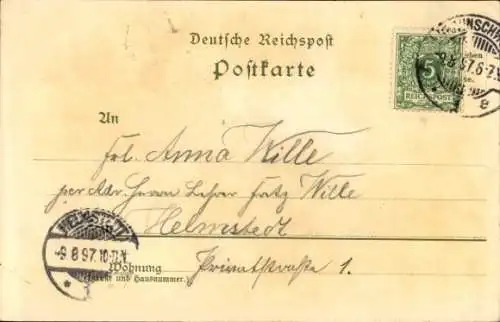 Deutsche Reichspost
Postkarte
BRAUNSCHW
9.8.97.6-7
5
REICHSPOST
An
Frl. Anna Wille
per Adr. Herrn Lehrer Fritz Wille
Helmstedt
HELMSTEDT
-9 8 97. 10-11.V.
Wohnung
(Straße und Hausnummer.)
Privatstraße 1.